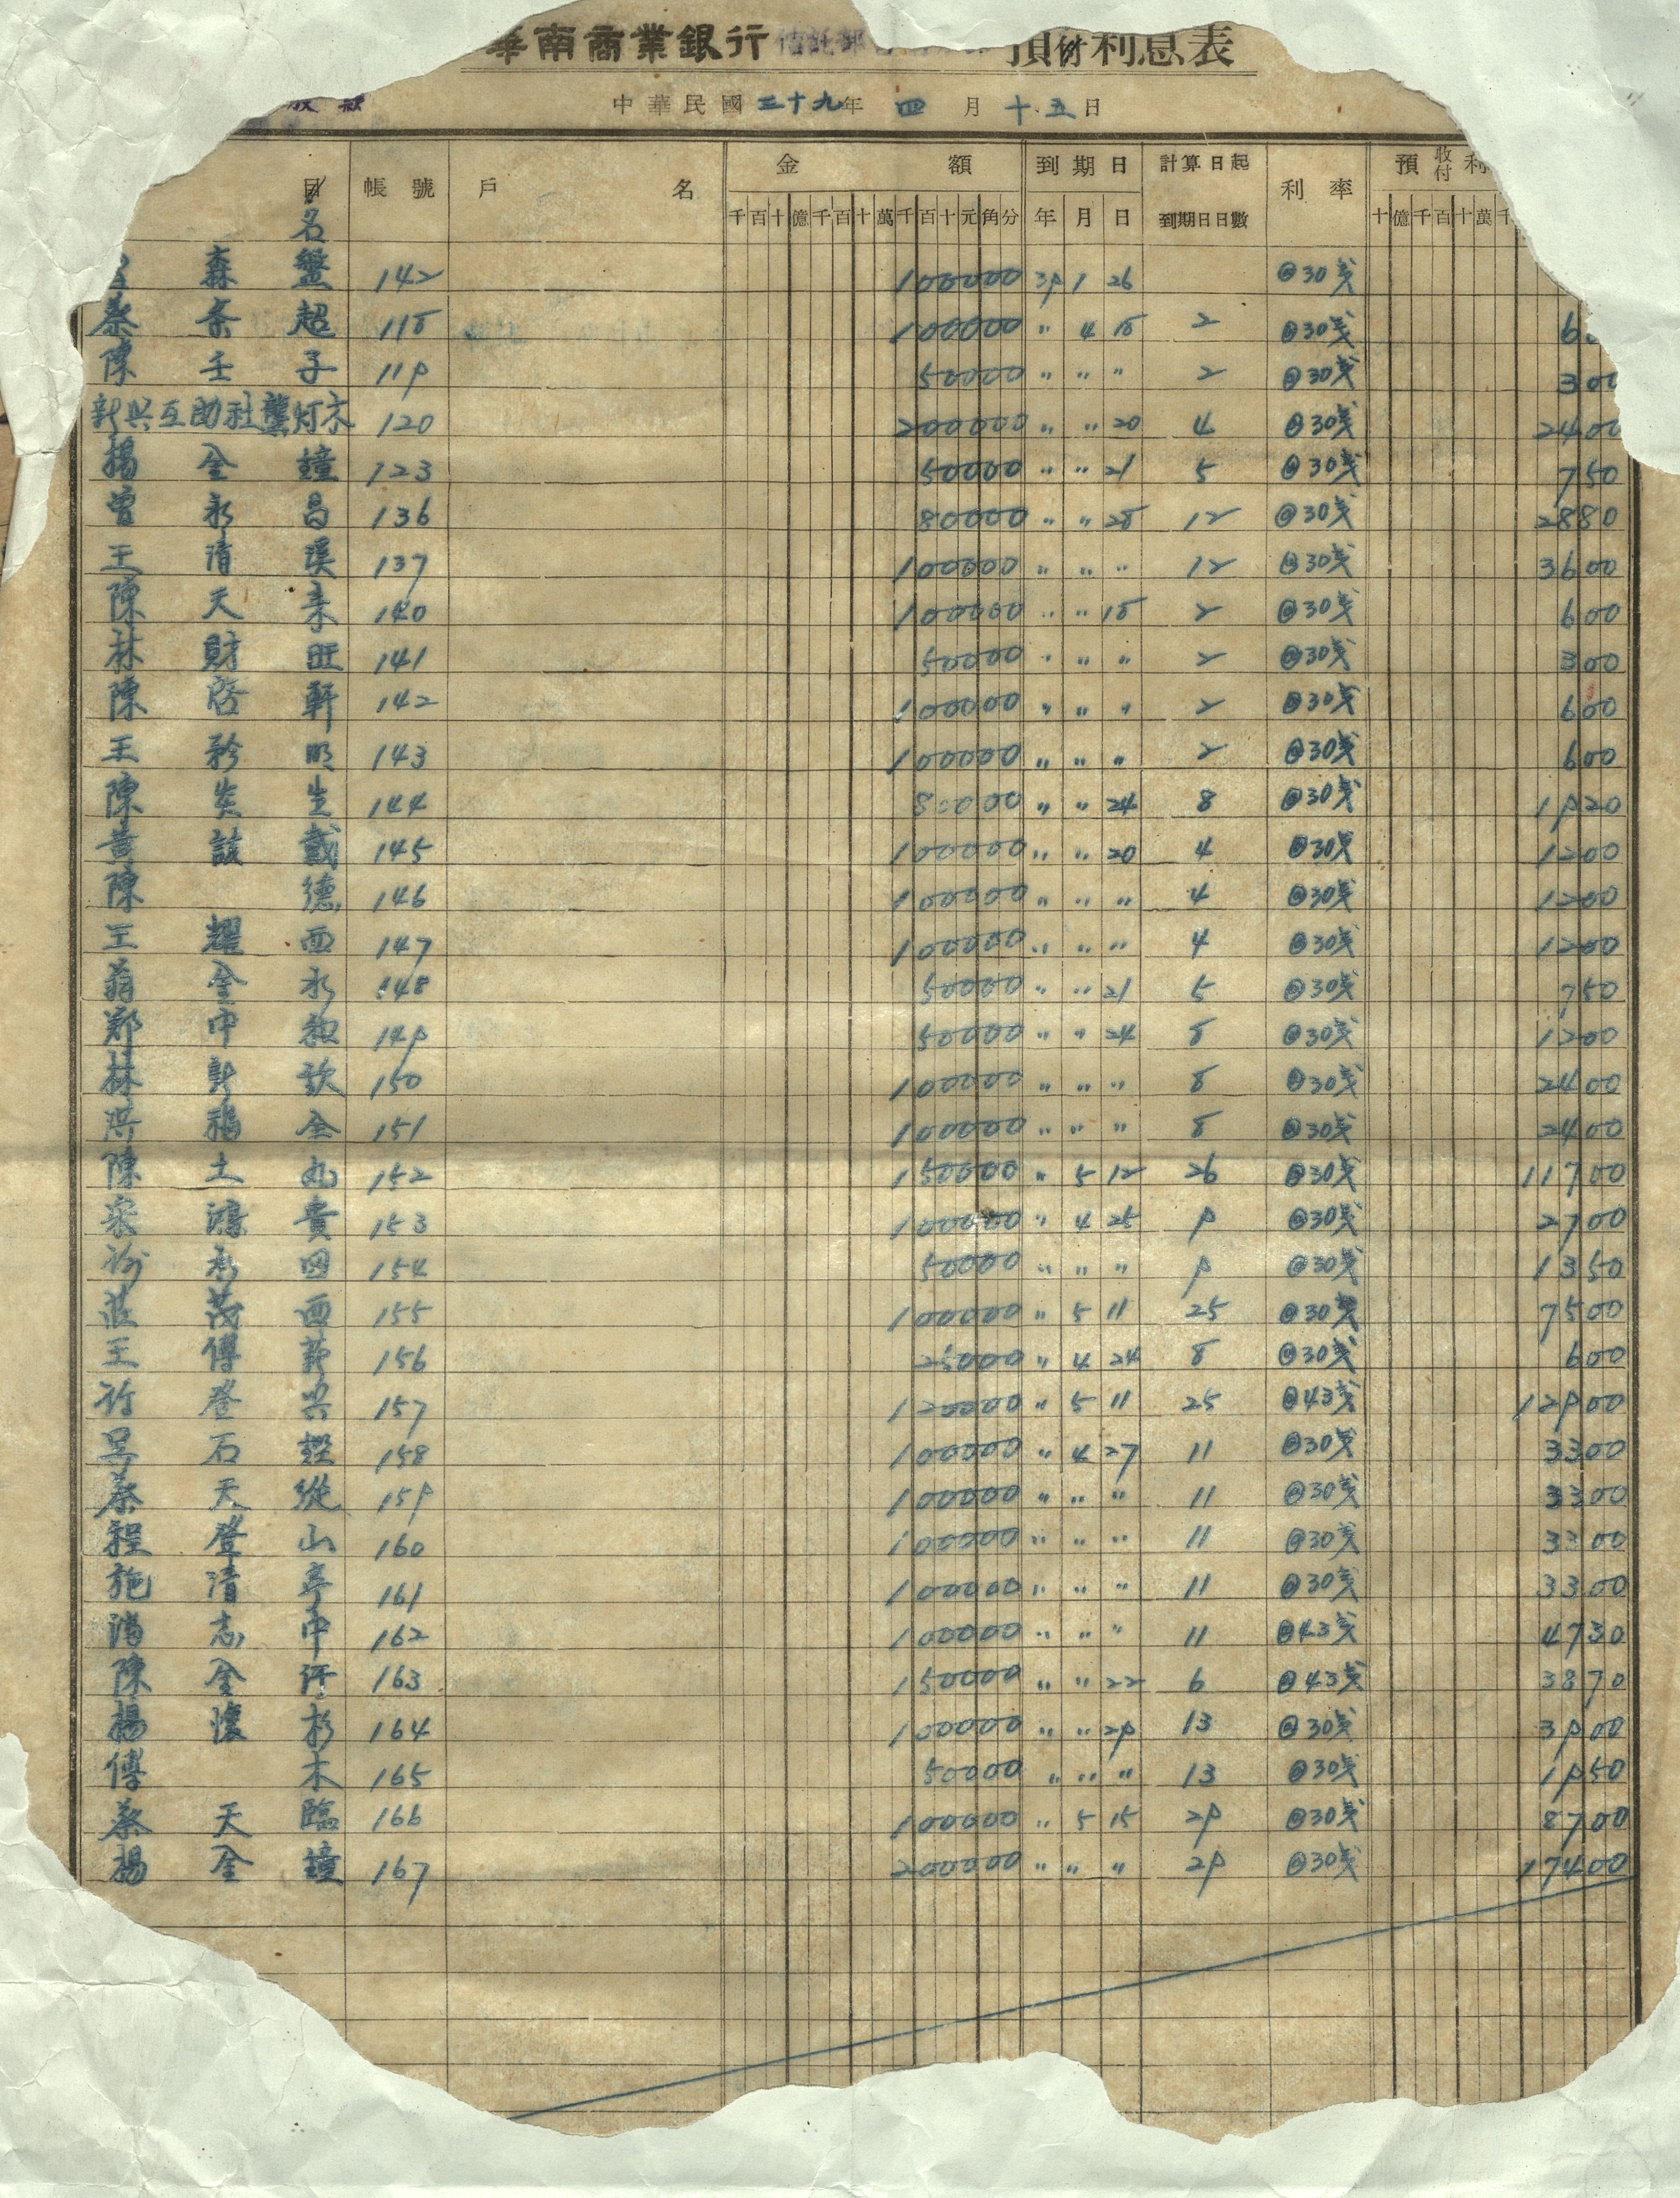 華南商業銀行 信託部 預付利息表
中華民國三十九年 四 月 十五日
目 帳號 戶名 金額 到期日 計算日起 利率 預收付利
名 千百十億千百十萬千百十元角分 年 月 日 到期日日數 十億千百十萬千
森盤 142 100000 39 1 26 @30戔
蔡条超 118 100000 " 4 18 2 @30戔 6
陳壬子 119 50000 " " " 2 @30戔 300
新興互助社龔灯木 120 200000 " " 20 4 @30戔 2400
楊金鐘 123 50000 " " 21 5 @30戔 750
曾永昌 136 80000 " " 28 12 @30戔 2880
王清溪 137 100000 " " " 12 @30戔 3600
陳天来 140 100000 " " 18 2 @30戔 600
林財旺 141 50000 " " " 2 @30戔 300
陳啓軒 142 100000 " " " 2 @30戔 600
王矜明 143 100000 " " " 2 @30戔 600
陳炎生 144 80000 " " 24 8 @30戔 1920
黄該戴 145 100000 " " 20 4 @30戔 1200
陳德 146 100000 " " " 4 @30戔 1200
王耀西 147 100000 " " " 4 @30戔 1200
翁金水 148 50000 " " 21 5 @30戔 750
鄭中和 149 50000 " " 24 8 @30戔 1200
林新欽 150 100000 " " " 8 @30戔 2400
洪福全 151 100000 " " " 8 @30戔 2400
陳土丸 152 150000 " 5 12 26 @30戔 11700
鴻貴 153 100000 " 4 25 9 @30戔 2700
154 50000 " " " 9 @30戔 1350
莊茂西 155 100000 " 5 11 25 @30戔 7500
王傳 156 25000 " 4 24 8 @30戔 600
許登興 157 120000 " 5 11 25 @43戔 12900
吳石 158 100000 " 4 27 11 @30戔 3300
蔡天從 159 100000 " " " 11 @30戔 3300
程登山 160 100000 " " " 11 @30戔 3300
施清亭 161 100000 " " " 11 @30戔 3300
志中 162 100000 " " " 11 @43戔 4730
陳金河 163 150000 " " 22 6 @43戔 3870
楊懷杉 164 100000 " " 29 13 @30戔 3900
傅木 165 50000 " " " 13 @30戔 1950
蔡天臨 166 100000 " 5 15 29 @30戔 8700
楊金鐘 167 200000 " " " 29 @30戔 17400